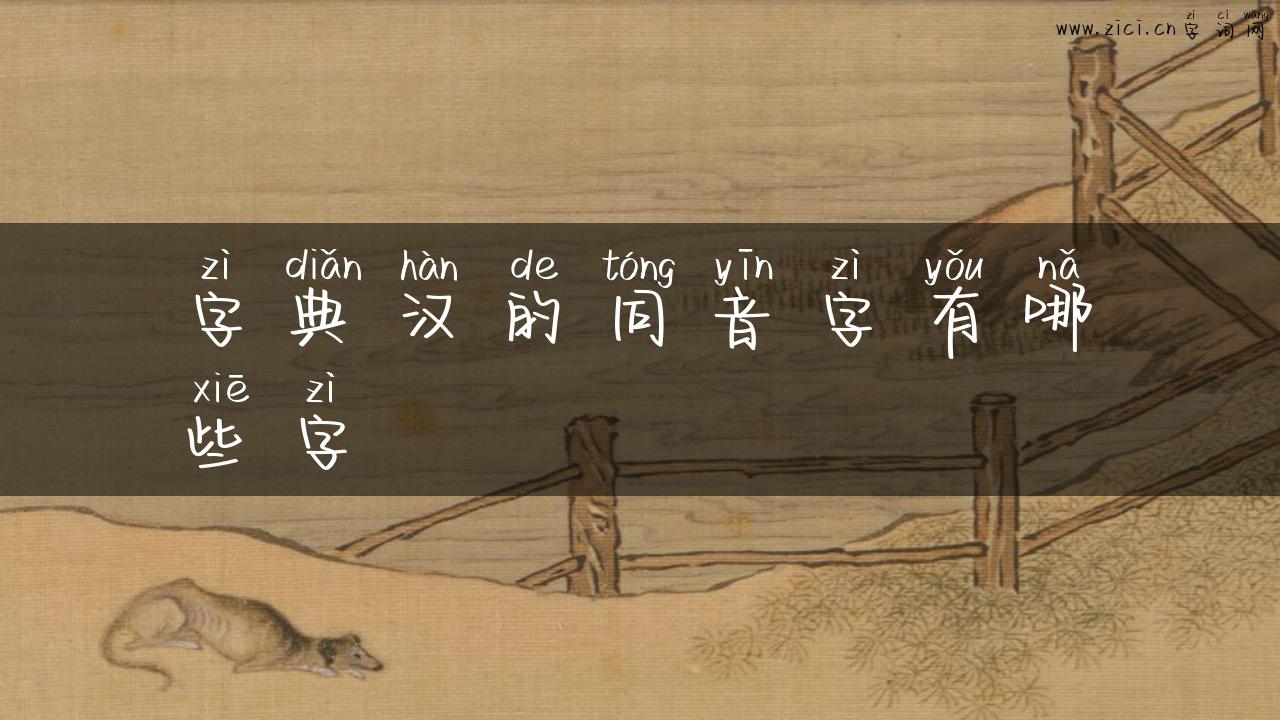 zì cí wǎng
www.zici.cn字词网
zì diǎn hàn de tóng yīn zì yǒu nǎ
字典汉的同音字有哪
xiē zì
些字